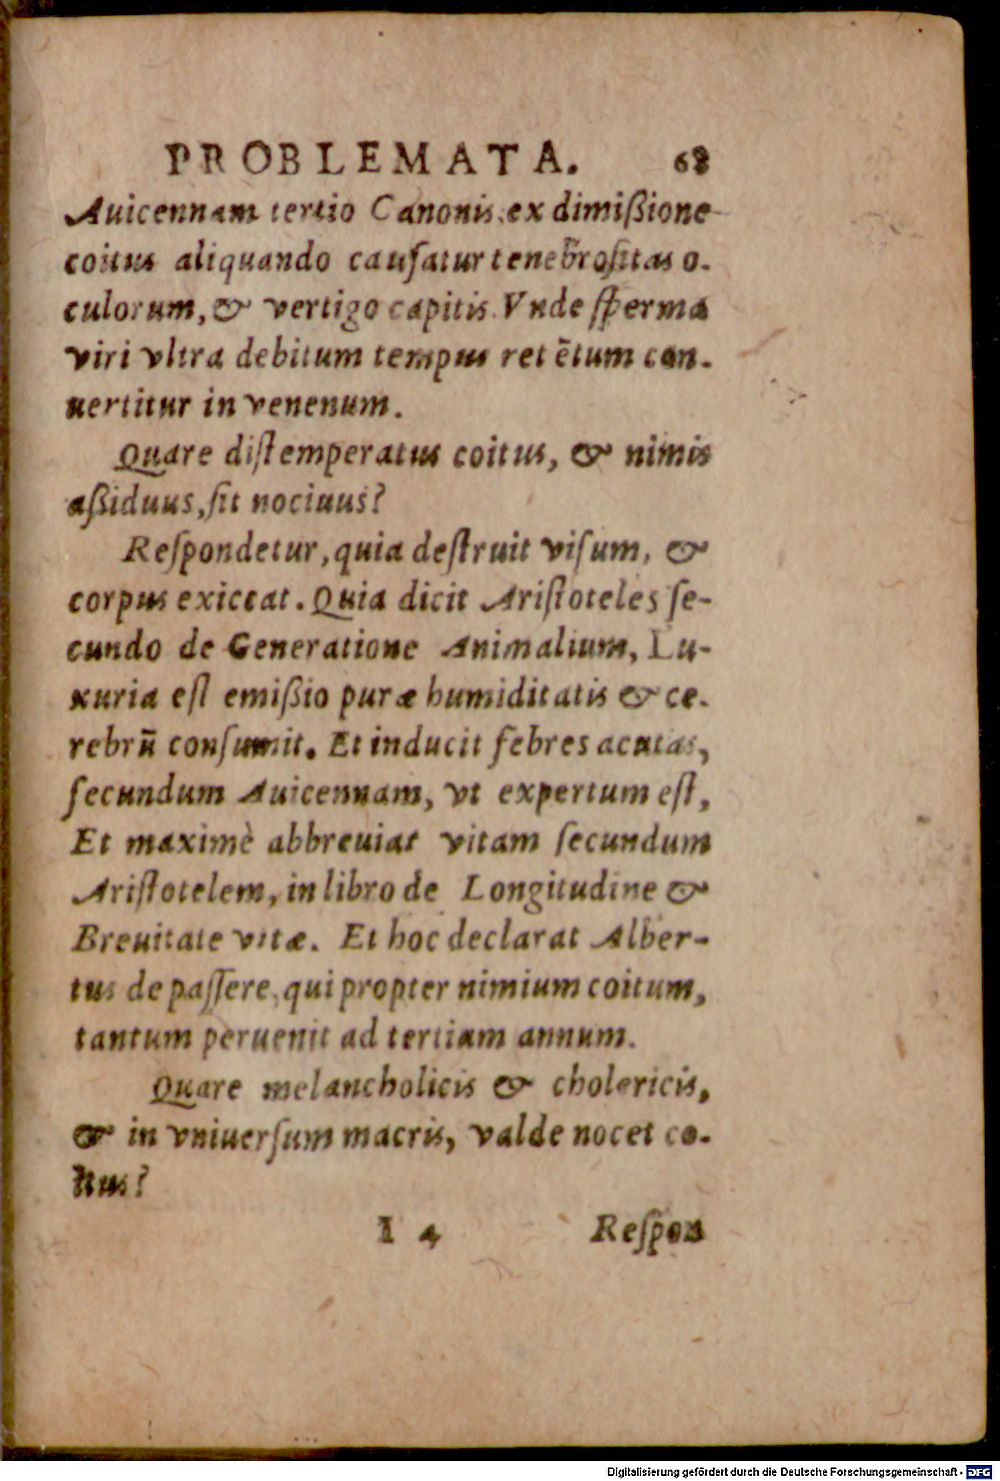 PROBLEMATA. 68
Auicennam tertio Canonis, ex dimißione
coitus aliquando causatur tenebrositas o-
culorum, & vertigo capitis. Vnde sperma
viri vltra debitum tempus retẽtum con-
uertitur in venenum.
Quare distemperatus coitus, & nimis
aßiduus, sit nociuus?
Respondetur, quia destruit visum, &
corpus exiccat. Quia dicit Aristoteles se-
cundo de Generatione Animalium, Lu-
xuria est emißio puræ humiditatis & ce-
rebrũ consumit. Et inducit febres acutas,
secundum Auicennam, vt expertum est,
Et maximè abbreuiat vitam secundum
Aristotelem, in libro de Longitudine &
Breuitate vitæ. Et hoc declarat Alber-
tus de passere, qui propter nimium coitum,
tantum peruenit ad tertiam annum.
Quare melancholicis & cholericis,
& in vniuersum macris, valde nocet co-
itus?
I 4 Respon
Digitalisierung gefördert durch die Deutsche Forschungsgemeinschaft - DFG